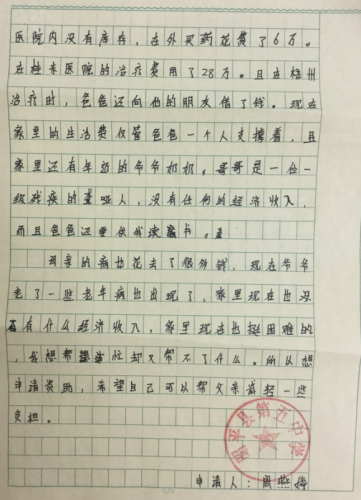 医院内没有库存，在外买药花费了6万。
在桂林医院的治疗费用了28万。且在梧州
治疗时，爸爸还向他的朋友借了钱。现在
家里的生活费仅靠爸爸一个人支撑着，且
家里还有年迈的爷爷奶奶。哥哥是一位一
级残疾的聋哑人，没有任何的经济收入，
而且爸爸还要供我读书。
母亲的病也花去了很多钱，现在爷爷
老了一些老年病也出现了，家里现在也没
有什么经济收入，家里现在也挺困难的
，我想帮忙却又帮不了什么。所以想
申请资助，希望自己可以帮父亲减轻一些
负担。
昭平县第五中学
申请人：周燕婷